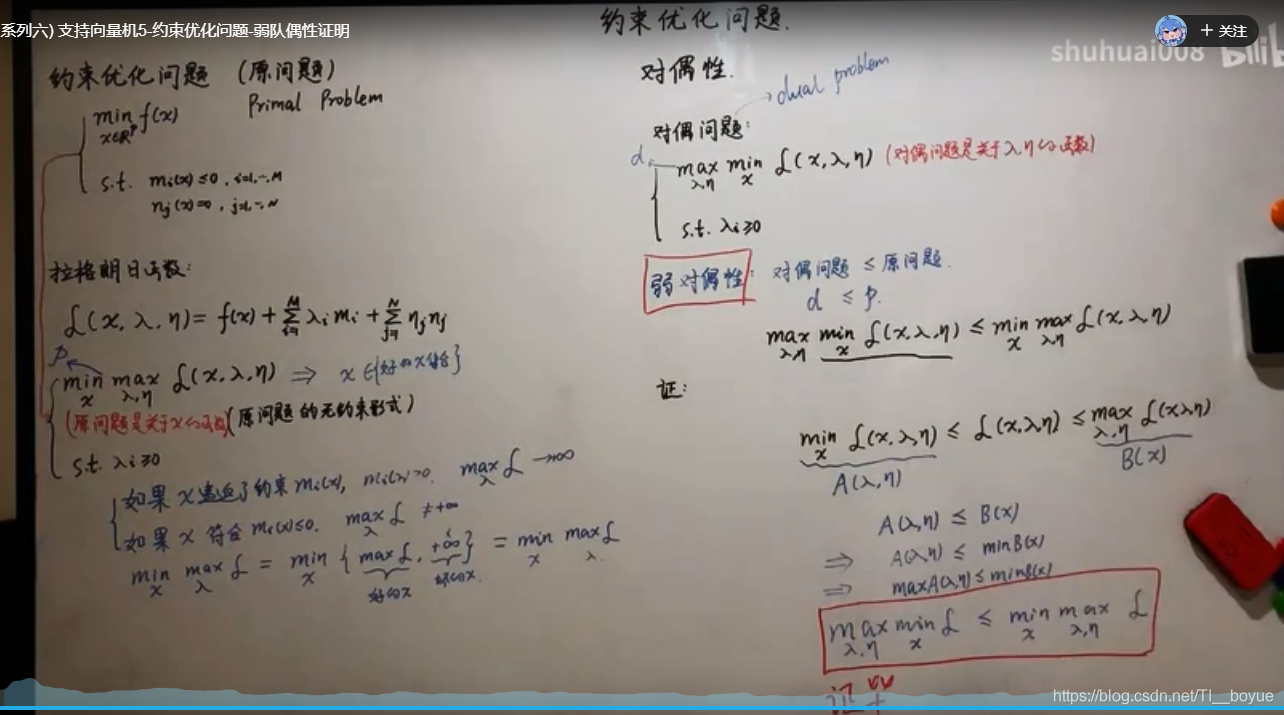 系列六) 支持向量机5-约束优化问题-弱队偶性证明
+ 关注
shuhuai008
约束优化问题.
约束优化问题 (原问题)
Primal Problem
min f(x)
x∈ℝᵖ
s.t. mᵢ(x) ≤ 0, i=1,…,M
nⱼ(x) = 0, j=1,…,N
拉格朗日函数:
ℒ(x, λ, η) = f(x) + Σ λᵢ mᵢ + Σ ηⱼ nⱼ
p
min max ℒ(x, λ, η) ⇒ x∈{好的x集合}
x λ,η
(原问题是关于x的函数) (原问题的无约束形式)
s.t. λᵢ ≥ 0
如果 x 违反了约束 mᵢ(x), mᵢ(x) > 0. max ℒ → +∞
λ
如果 x 符合 mᵢ(x) ≤ 0. max ℒ ≠ +∞
λ
min max ℒ = min { max ℒ, +∞ } = min max ℒ
x λ x x λ
好的x 坏的x.
对偶性.
dual problem
对偶问题:
d
max min ℒ(x, λ, η) (对偶问题是关于λ,η的函数)
λ,η x
s.t. λᵢ ≥ 0
弱对偶性: 对偶问题 ≤ 原问题.
d ≤ p.
max min ℒ(x, λ, η) ≤ min max ℒ(x, λ, η)
λ,η x x λ,η
证:
min ℒ(x, λ, η) ≤ ℒ(x, λ, η) ≤ max ℒ(x λ η)
x λ,η
A(λ, η) B(x)
A(λ, η) ≤ B(x)
⇒ A(λ, η) ≤ min B(x)
⇒ max A(λ, η) ≤ min B(x)
max min ℒ ≤ min max ℒ
λ,η x x λ,η
证
https://blog.csdn.net/TI__boyue